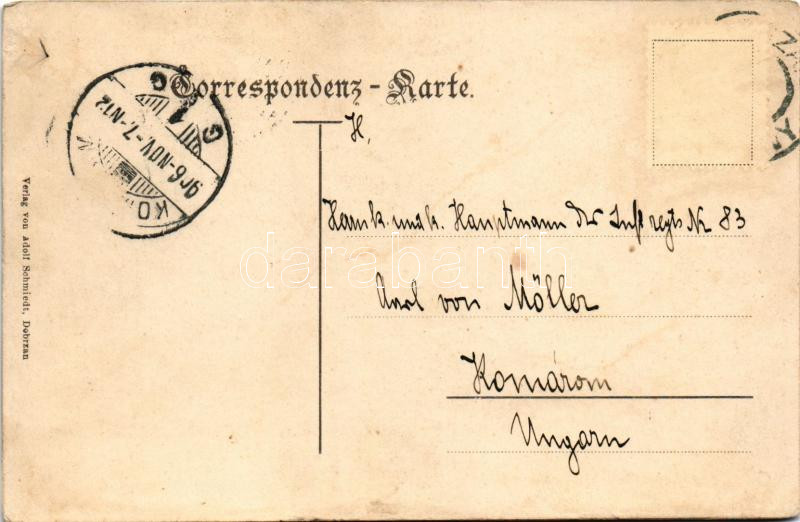 Correspondenz-Karte.
906-NOV.-7.-N12
KO
G
1
G
H,
Herrn k. und k. Hauptmann des Inf regts Nr 83
Karl von Möller
Komárom
Ungarn
Verlag von Adolf Schmiedt, Dobrzan
darabanth